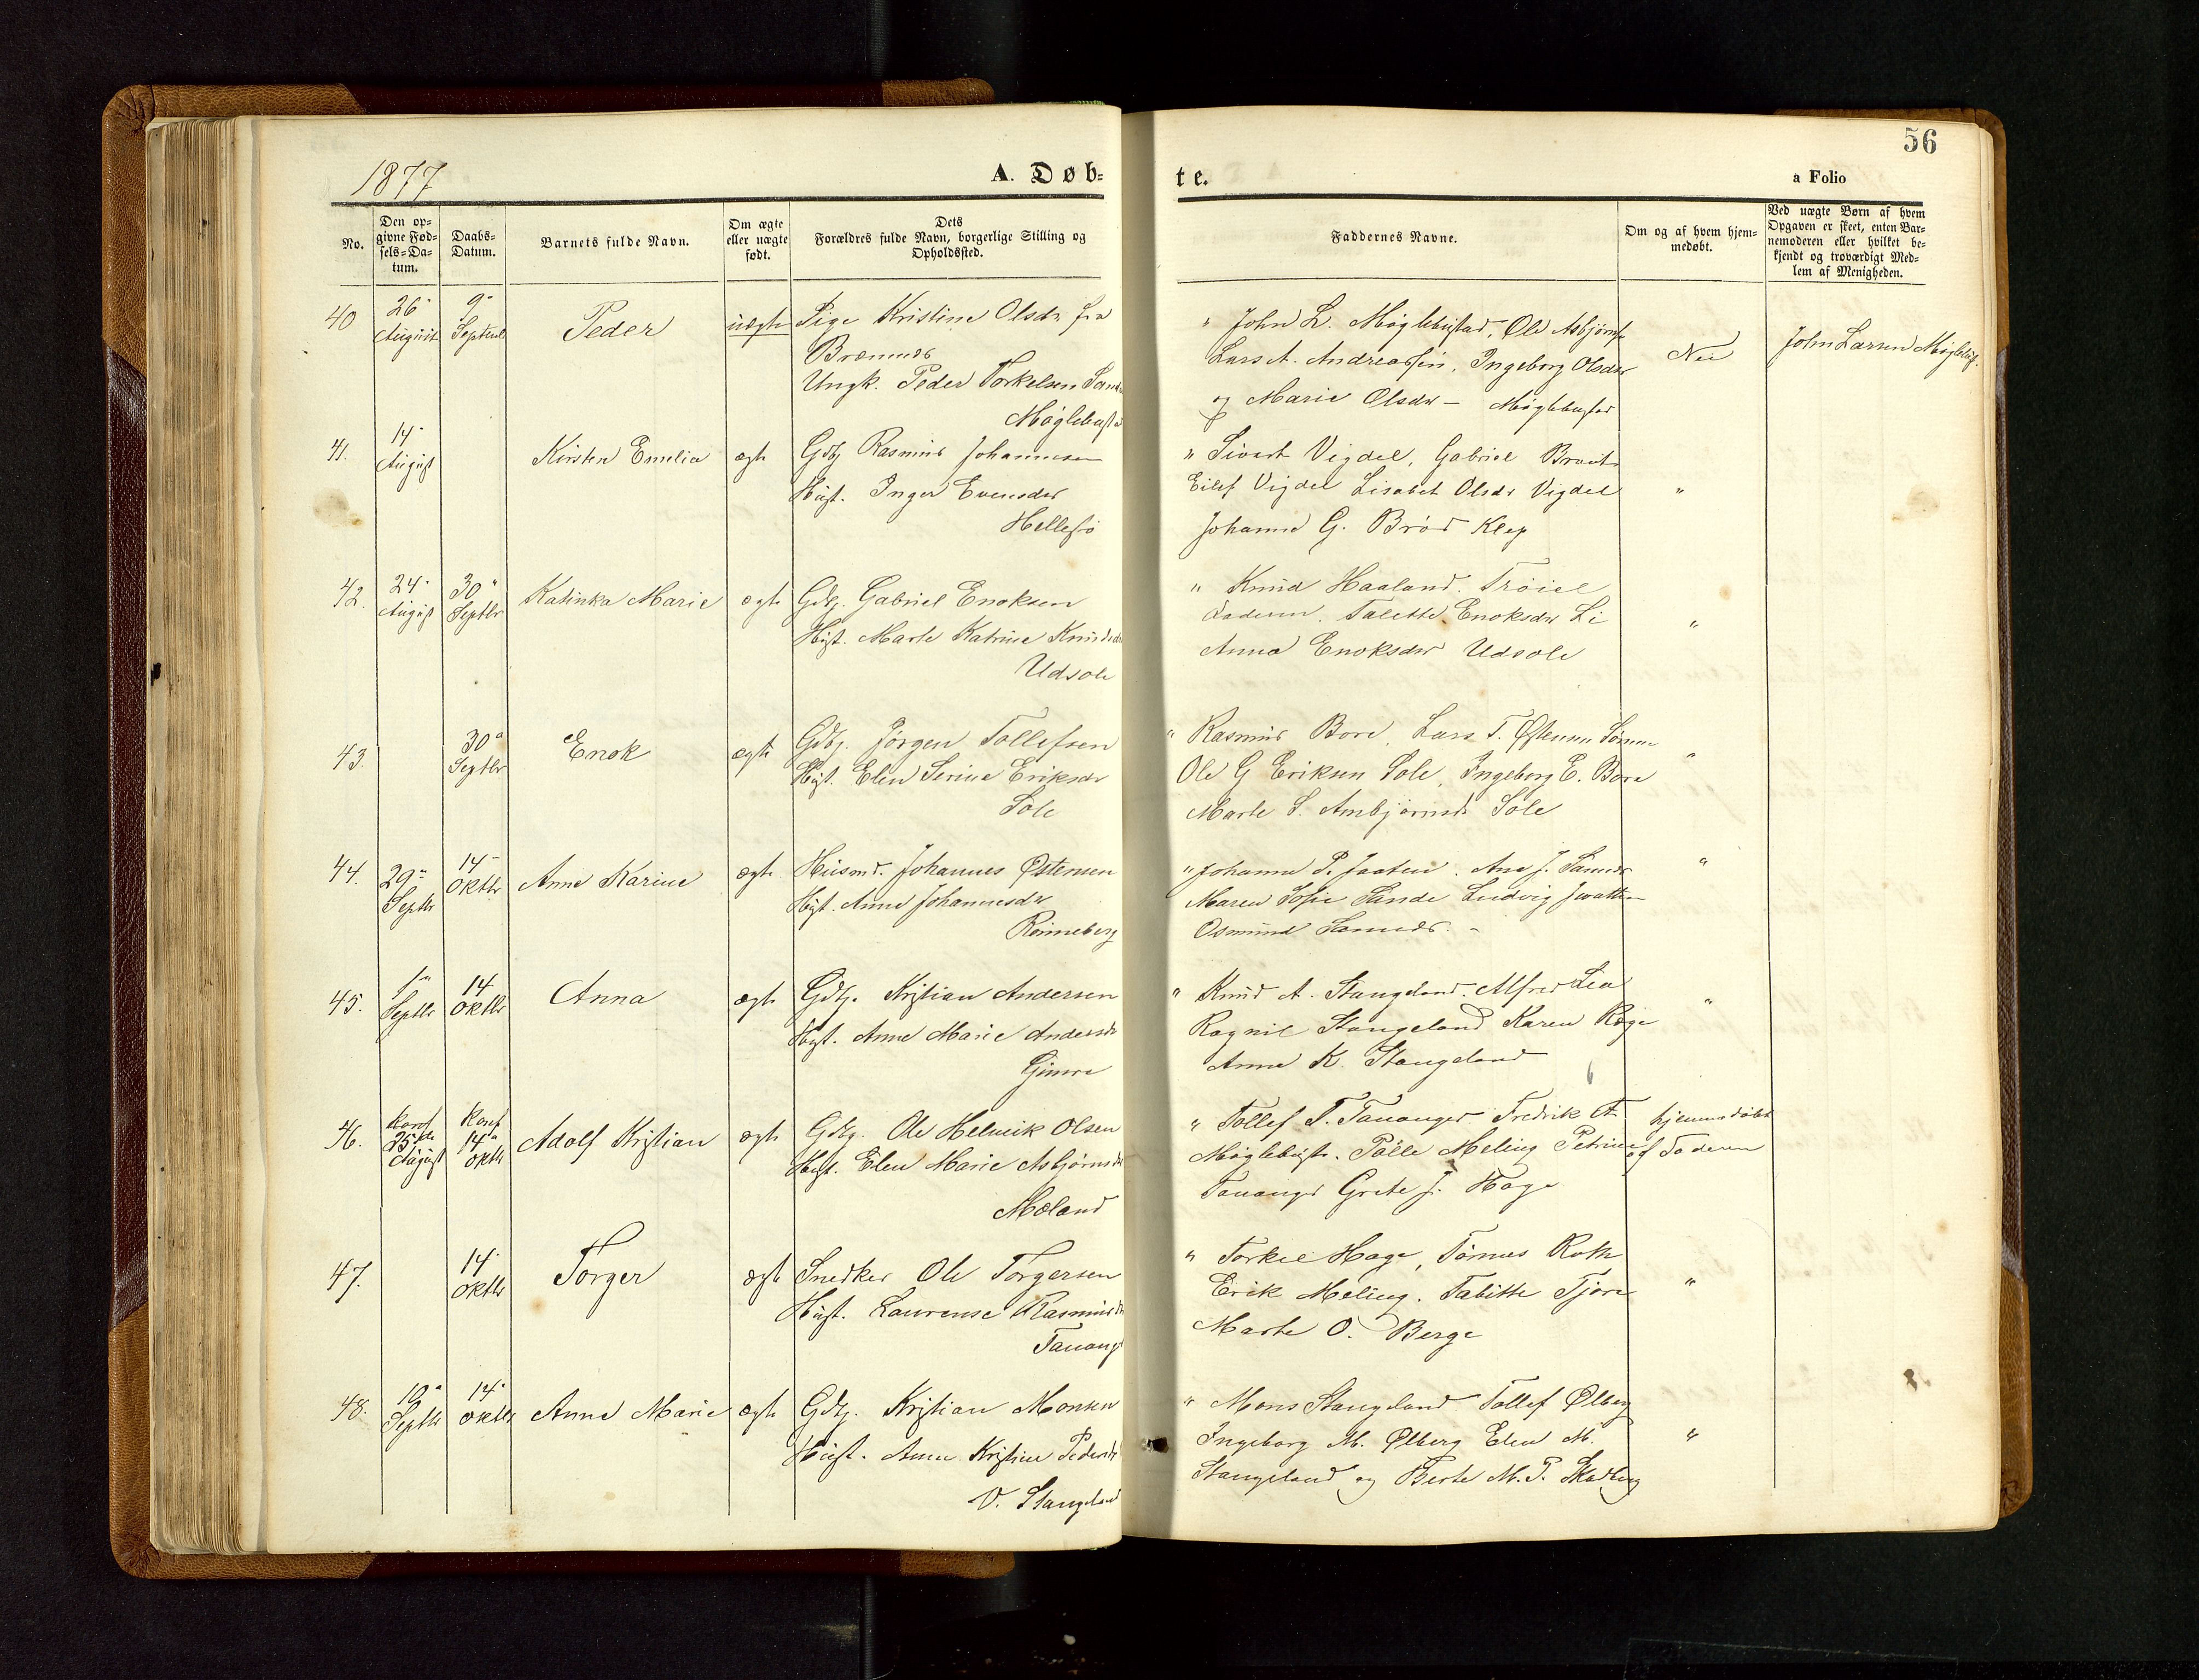 56
1877
A. Døb=
te.
a Folio
No.
Den op=
givne Fød=
sels=Da=
tum.
Daabs=
Datum.
Barnets fulde Navn.
Om ægte
eller uægte
født.
Dets
Forældres fulde Navn, borgerlige Stilling og
Opholdssted.
Faddernes Navne.
Om og af hvem hjem=
medøbt.
Ved uægte Børn af hvem
Opgaven er skeet, enten Bar=
nemoderen eller hvilket be=
kjendt og troværdigt Med=
lem af Menigheden.
40 26 August 9 Septemb Peder uægte Pige Kristine Olsdr fra
Ungk. Peder Torkelsen
Møglebust
" John L. Møglebustad, Ole Asbjørns
Lars A. Andreassen, Ingeborg Olsdr
og Marie Olsdr - Møglebustad
Nei
John Larsen Møglebust.
41. 14 August Kirsten Emelia ægte Gdbg Rasmus Johannesen
Hust. Inger Evensdr
Hellesø
" Sivert Vigdel, Gabriel
Eilef Vigdel Lisabet Olsdr Vigdel "
Johanne G. Klep
42. 24 August 30 Septbr Katinka Marie ægte Gdbg. Gabriel Enoksen
Hust. Marte Katrine Knudsd
Udsole
" Knud Haaland.
Faderen. Talette Enoksdr Li "
Anna Enoksdr Udsole
43. 30 Septbr Enok ægte Gdbg. Jørgen Tollefsen
Hust. Elen Serine Eriksdr
Sole
" Rasmus Bore, Lars T. Østensen "
Ole G Eriksen Sole, Ingeborg E. Bore
Marte S. Ambjørnsd Sole
44. 29 Septbr 14 Oktbr Anne Karine ægte Husmd. Johannes Østensen
Hust. Anne Johannesdr
Rønneberg
" Johanne P. Ane J. "
Maren Sofie Sande Ludvig
Osmund
45. 1 Septbr 14 Oktbr Anna ægte Gdbg. Kristian Andersen
Hust. Anne Marie Andersdr
Gimre
" Knud A. Stangeland. Alfred Lea "
Ragnil Stangeland Karen Rege
Anna K. Stangeland
46. Konf 25de August Konf 14 Oktbr Adolf Kristian ægte Gdbg. Ole Helmik Olsen
Hust. Elen Marie Asbjørnsdr
Meland
" Tollef T. Tananger Fredrik A hjemmedøbt
Møglebust. Palle Meling Petrine af Faderen
Tananger Grete J. Hage
47. 14 Oktbr Torger ægte Snedker Ole Torgersen
Hust. Laurense Rasmusdr
Tanang
" Torkel Hage, Tørres Roth
Erik Meling. Tabitte Tjora "
Marte O. Berge
48. 10 Septbr 14 Oktbr Anne Marie ægte Gdbg. Kristian Monsen
Hust. Anne Kristine Pedersdr
V. Stangeland
" Mons Stangeland Tollef Ølberg
Ingeborg M. Ølberg Elen M. "
Stangeland og Berte M. T. Skadberg